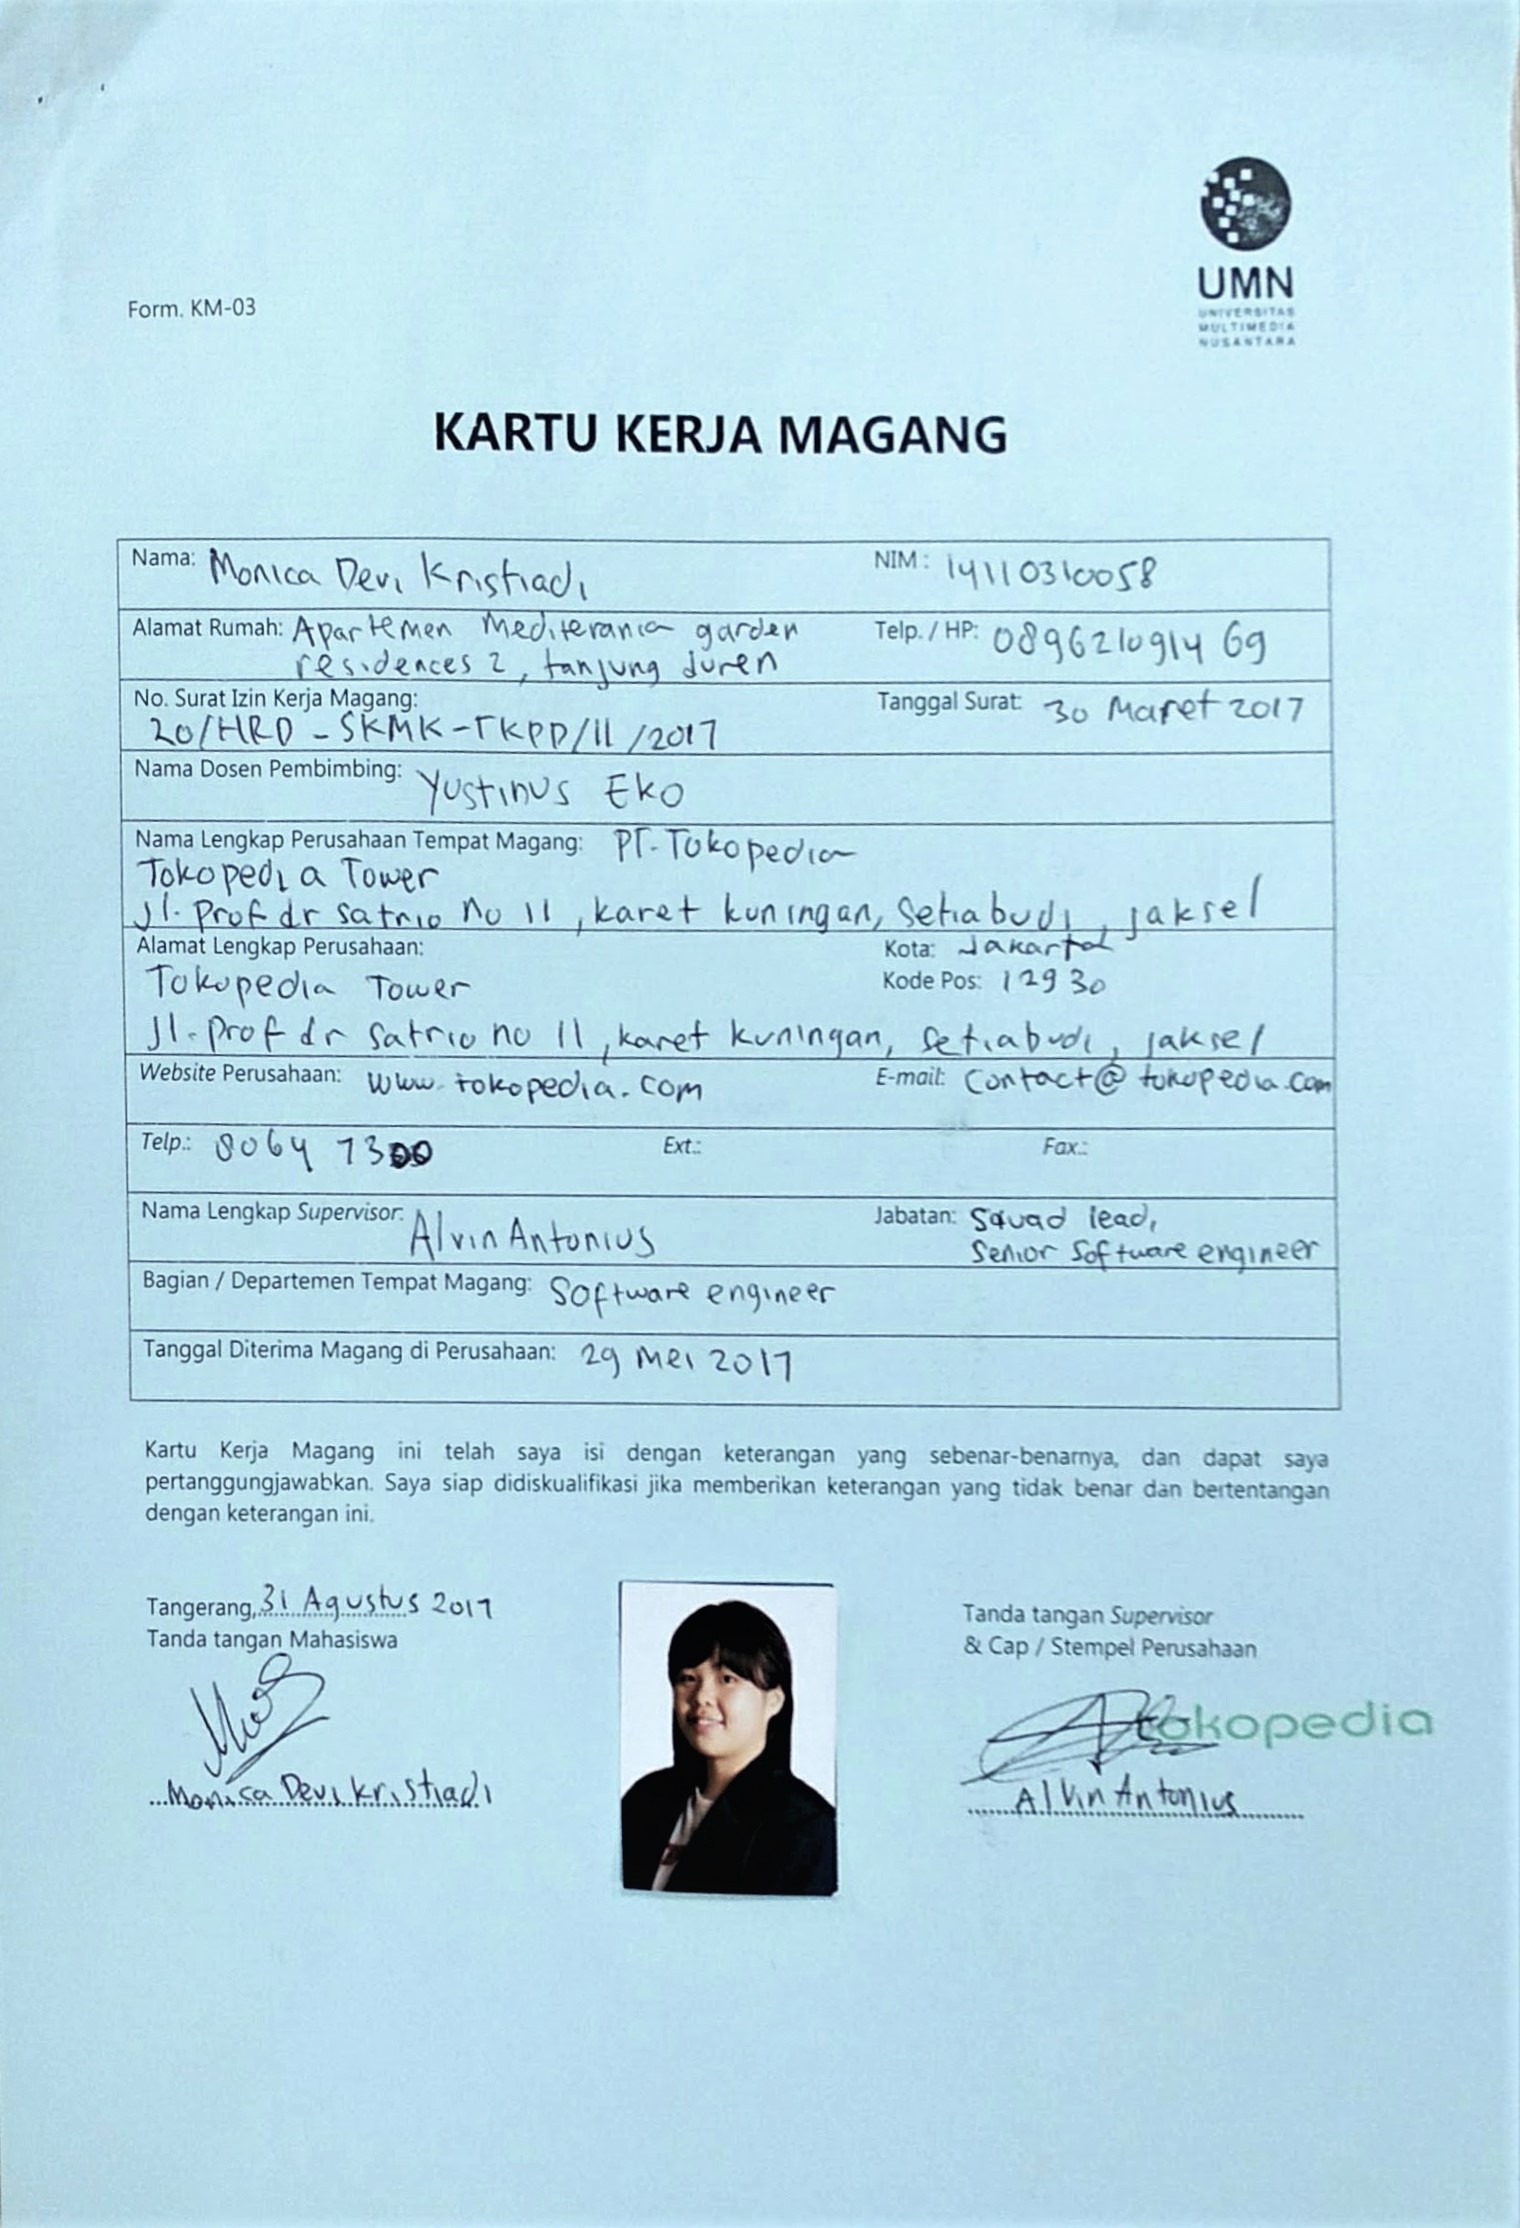 UMN
UNIVERSITAS
MULTIMEDIA
NUSANTARA
Form. KM-03
KARTU KERJA MAGANG
Nama: Monica Devi Kristiadi NIM : 14110310058
Alamat Rumah: Apartemen Mediterania garden Telp. / HP: 089621091469
residences 2, tanjung duren
No. Surat Izin Kerja Magang: Tanggal Surat: 30 Maret 2017
20/HRD - SKMK-TKPD/II/2017
Nama Dosen Pembimbing: Yustinus Eko
Nama Lengkap Perusahaan Tempat Magang: PT. Tokopedia
Tokopedia Tower
Jl. Prof dr satrio no 11, karet kuningan, setiabudi, jaksel
Alamat Lengkap Perusahaan: Kota: Jakarta
Tokopedia Tower Kode Pos: 12930
Jl. Prof dr satrio no 11, karet kuningan, setiabudi, jaksel
Website Perusahaan: www.tokopedia.com E-mail: contact@tokopedia.com
Telp.: 8064 7300 Ext.: Fax.:
Nama Lengkap Supervisor: Alvin Antonius Jabatan: Squad lead,
Senior Software engineer
Bagian / Departemen Tempat Magang: Software engineer
Tanggal Diterima Magang di Perusahaan: 29 Mei 2017
Kartu Kerja Magang ini telah saya isi dengan keterangan yang sebenar-benarnya, dan dapat saya
pertanggungjawabkan. Saya siap didiskualifikasi jika memberikan keterangan yang tidak benar dan bertentangan
dengan keterangan ini.
Tangerang, 31 Agustus 2017
Tanda tangan Mahasiswa
Monica Devi Kristiadi
Tanda tangan Supervisor
& Cap / Stempel Perusahaan
tokopedia
Alvin Antonius